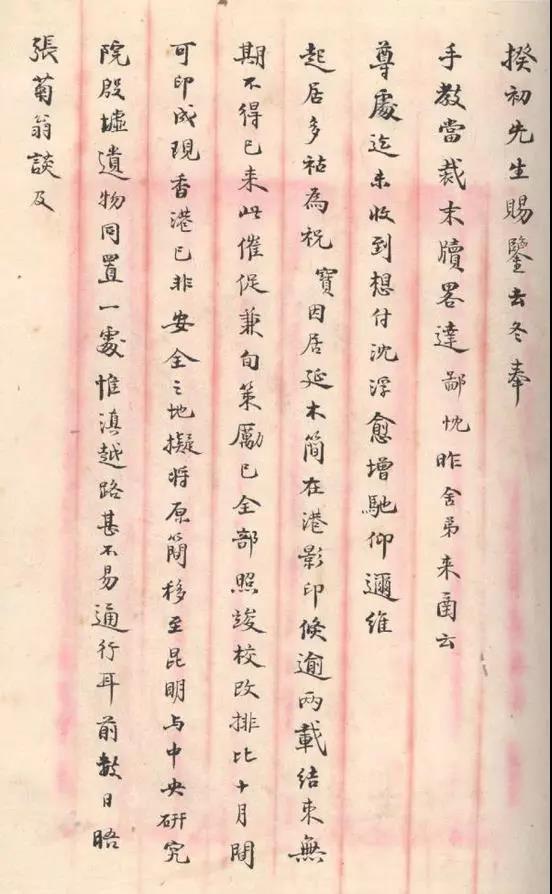 揆初先生賜鑒去冬奉
手教當裁末牘畧達鄙忱昨舍弟来函云
尊處迄未收到想付沈浮愈增馳仰邇維
起居多祜為祝 寶因居延木簡在港影印倏逾兩載結束無
期不得已来此催促兼旬策厲已全部照竣校改排比十月間
可印成現香港已非安全之地擬將原簡移至昆明与中央研究
院殷墟遺物同置一處惟滇越路甚不易通行耳前數日晤
張菊翁談及